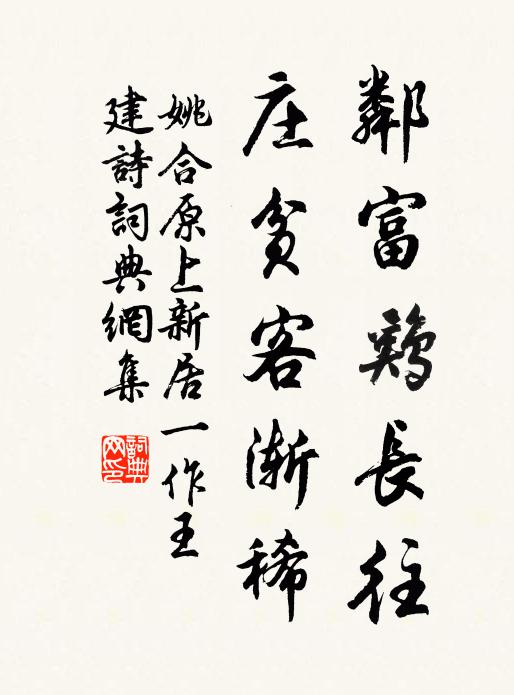 鄰富鷄長往
庄貧客漸稀
姚合原上新居一作王
建詩詞典網集
詞典
网印